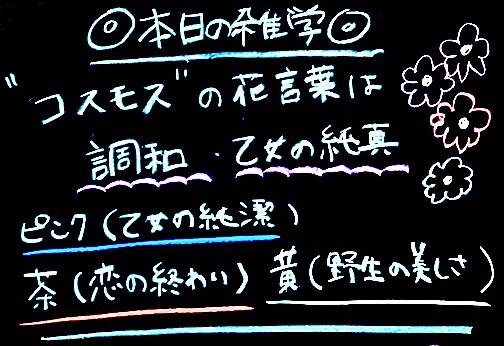 ◎本日の雑学◎
"コスモス"の花言葉は
調和・乙女の純真
ピンク(乙女の純潔)
茶(恋の終わり) 黄(野生の美しさ)